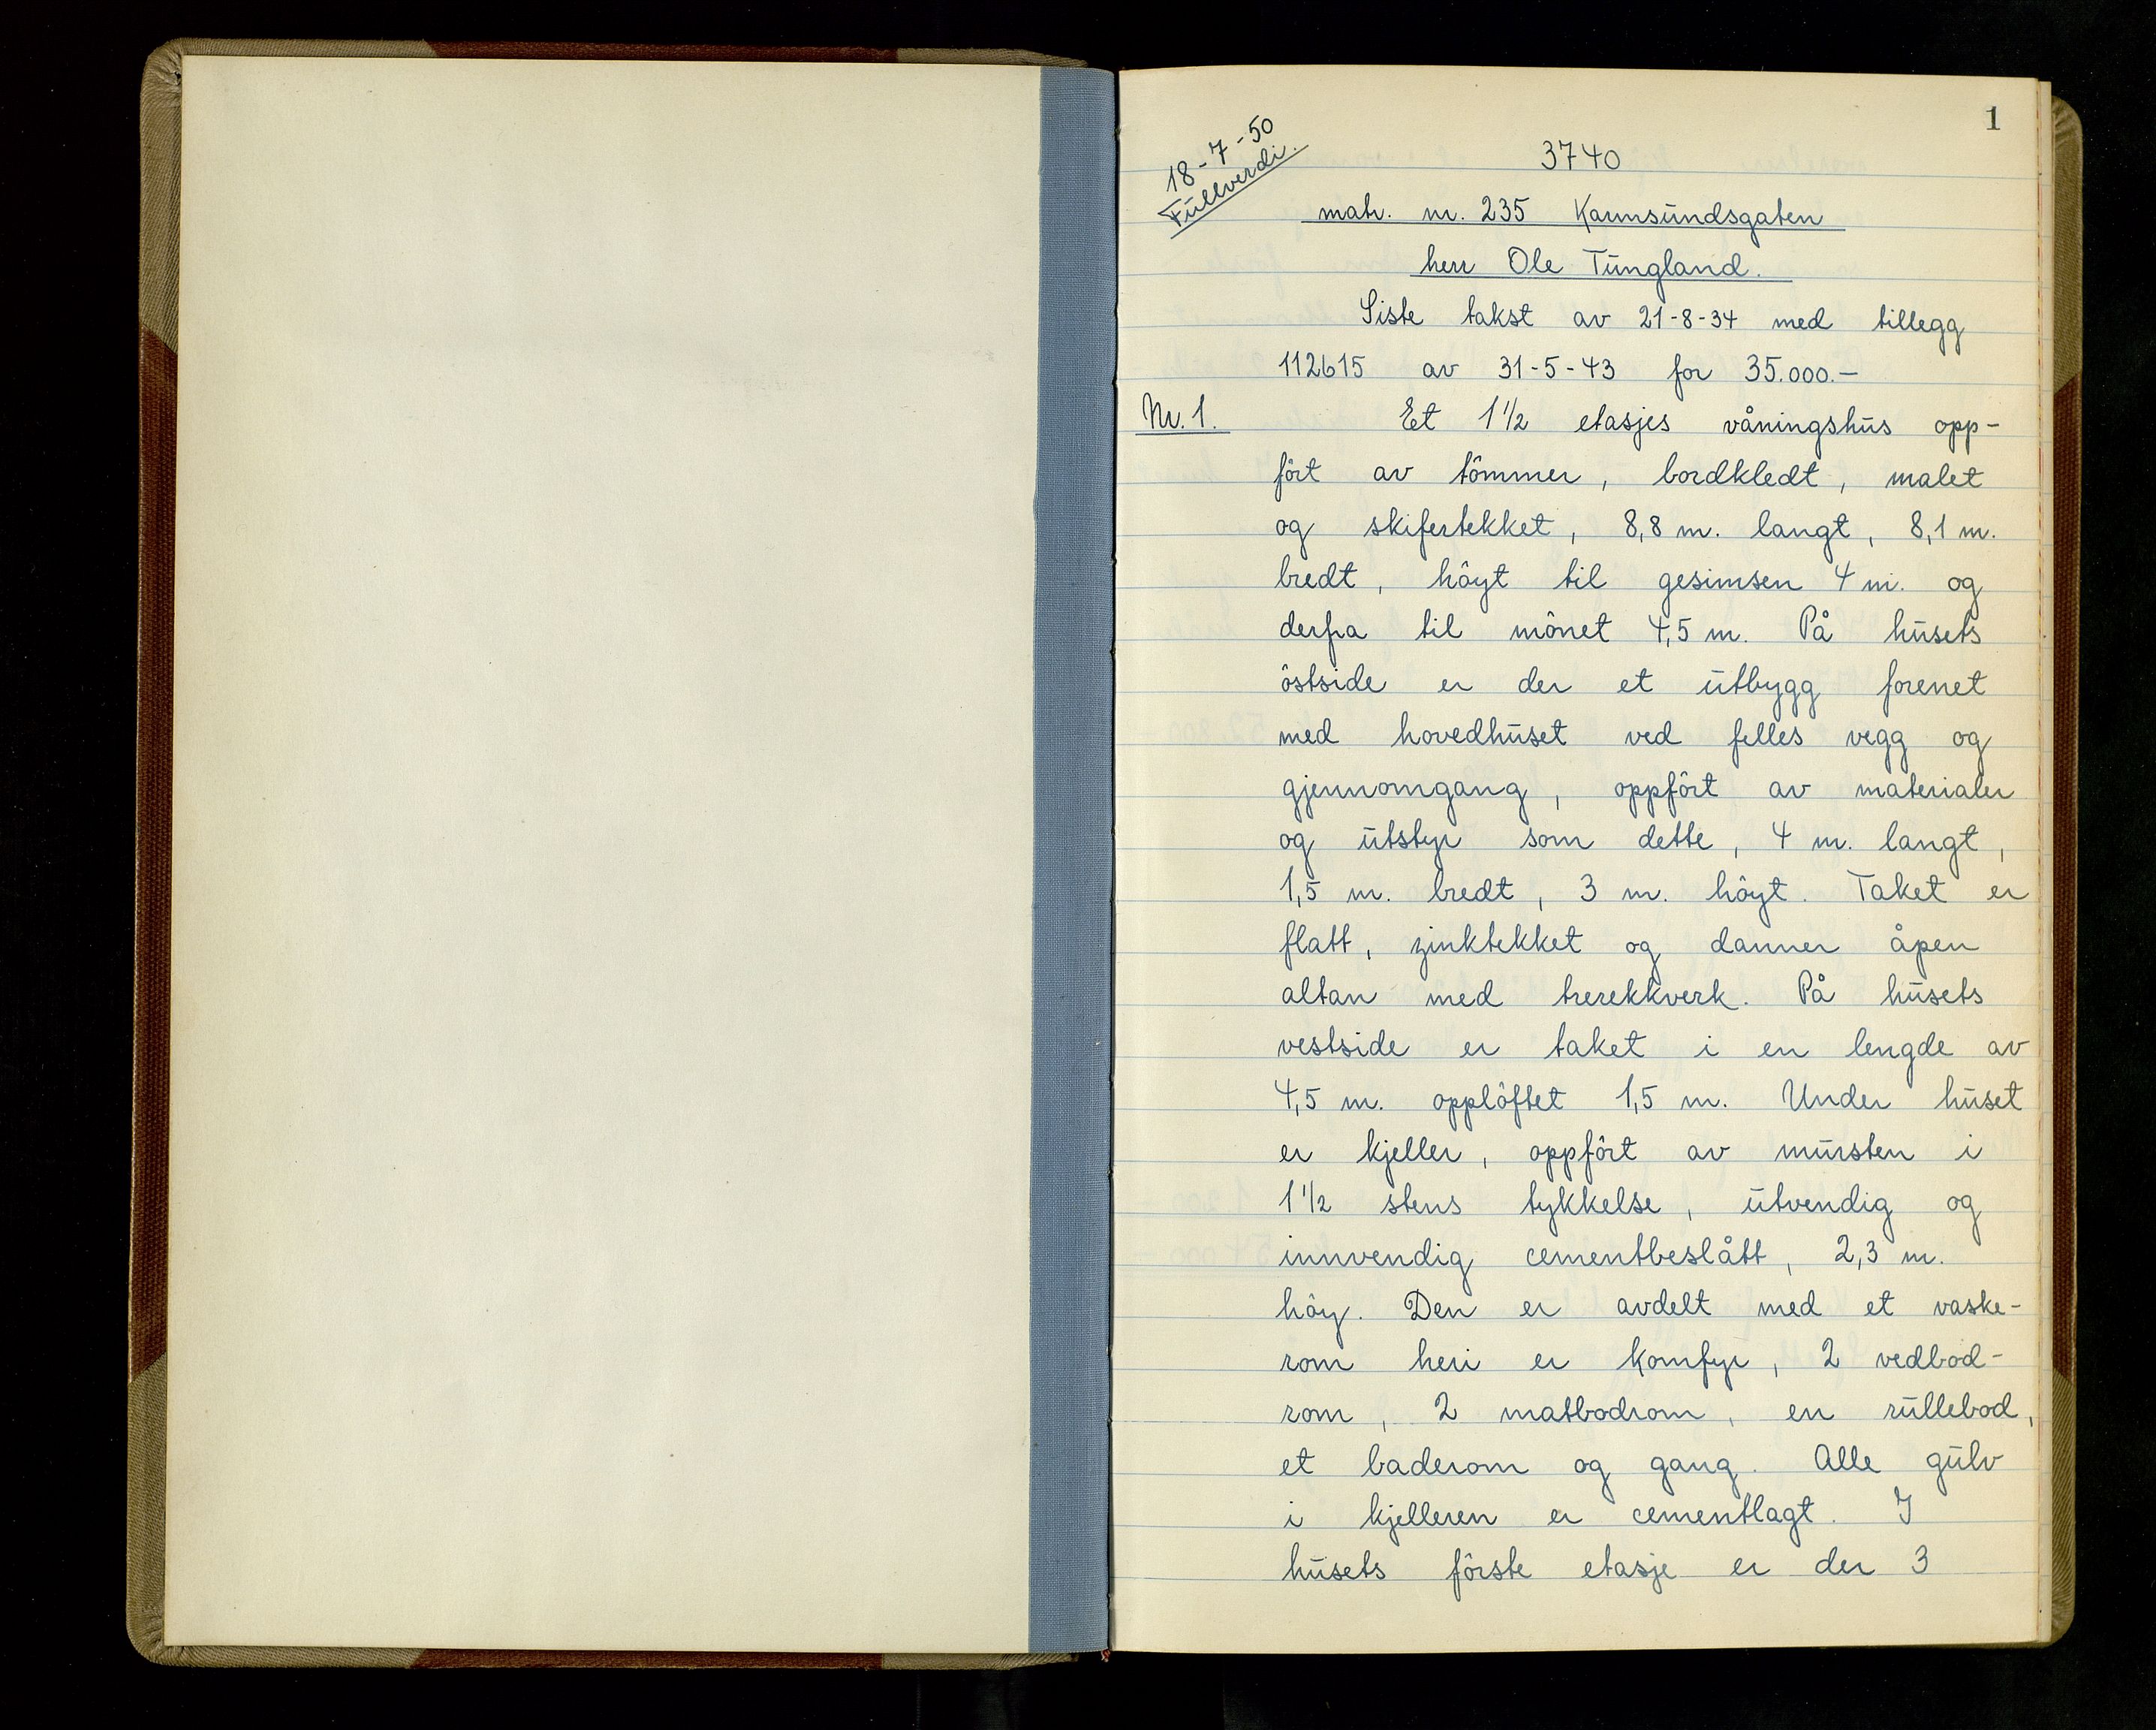 1
18-7-50
Fullverdi.
3740
matr. nr. 235 Karmsundsgaten
herr Ole Tungland.
Siste takst av 21-8-34 med tillegg
112615 av 31-5-43 for 35.000.-
Nr. 1. Et 1 1/2 etasjes våningshus opp-
ført av tømmer, bordkledt, malet
og skifertekket, 8,8 m. langt, 8,1 m.
bredt, høyt til gesimsen 4 m. og
derfra til mønet 4,5 m. På husets
østside er der et utbygg forenet
med hovedhuset ved felles vegg og
gjennomgang, oppført av materialer
og utstyr som dette, 4 m. langt,
1,5 m. bredt, 3 m. høyt. Taket er
flatt, zinktekket og danner åpen
altan med trerekkverk. På husets
vestside er taket i en lengde av
4,5 m. oppløftet 1,5 m. Under huset
er kjeller, oppført av mursten i
1 1/2 stens tykkelse, utvendig og
innvendig cementbeslått, 2,3 m.
høy. Den er avdelt med et vaske-
rom heri er komfyr, 2 vedbod-
rom, 2 matbodrom, en rullebod,
et baderom og gang. Alle gulv
i kjelleren er cementlagt. I
husets første etasje er der 3